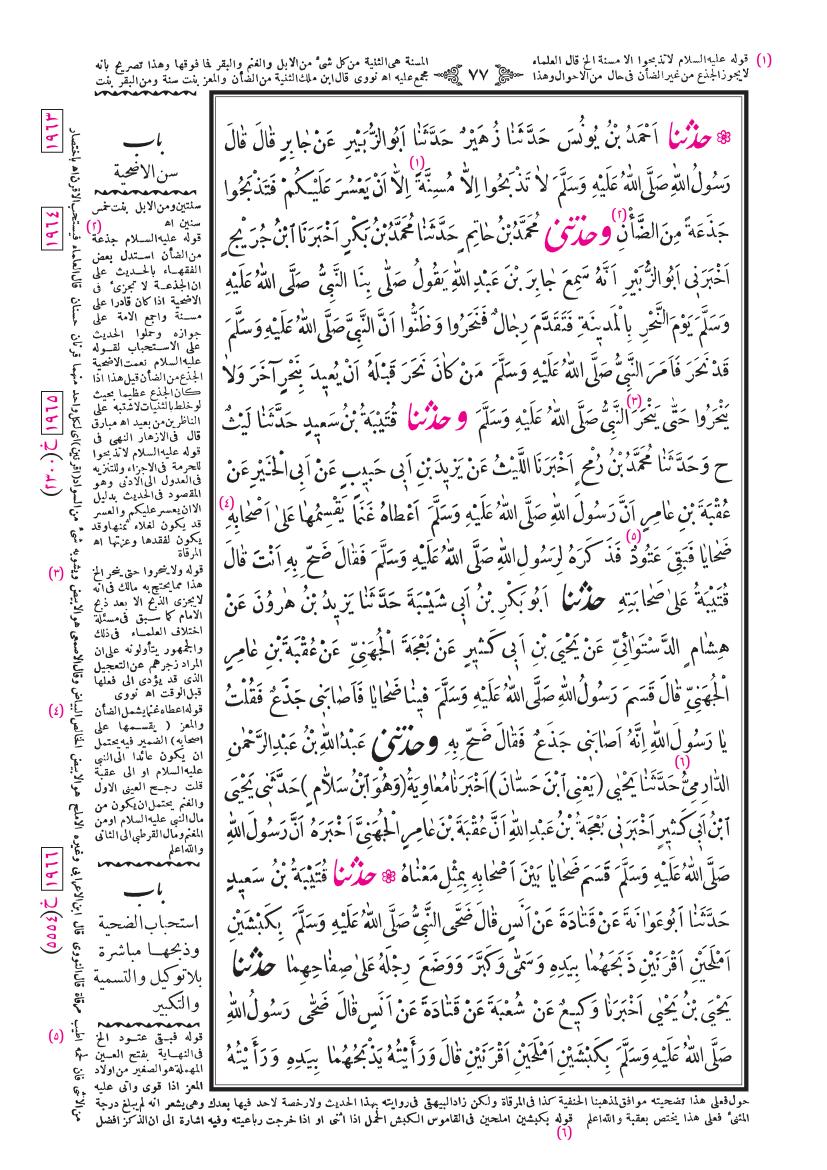 (١) قوله عليه السلام لا تذبحوا الا مسنة الخ قال العلماء
المسنة هى الثنية من كل شئ من الابل والغنم والبقر فما فوقها وهذا تصريح بانه
لا يجوز الجذع من غير الضأن فى حال من الاحوال وهذا
٧٧
مجمع عليه اه نووى قال ابن ملك الثنية من الضأن والمعز بنت سنة ومن البقر بنت
❁ حَدَّثَنَا اَحْمَدُ بْنُ يُونُسَ حَدَّثَنَا زُهَيْرٌ حَدَّثَنَا اَبُو الزُّبَيْرِ عَنْ جَابِرٍ قَالَ قَالَ
رَسُولُ اللهِ صَلَّى اللهُ عَلَيْهِ وَسَلَّمَ لَا تَذْبَحُوا اِلَّا مُسِنَّةً (١) اِلَّا اَنْ يَعْسُرَ عَلَيْكُمْ فَتَذْبَحُوا
جَذَعَةً مِنَ الضَّأْنِ (٢) وحَدَّثَنِى مُحَمَّدُ بْنُ حَاتِمٍ حَدَّثَنَا مُحَمَّدُ بْنُ بَكْرٍ اَخْبَرَنَا ابْنُ جُرَيْجٍ
اَخْبَرَنِى اَبُو الزُّبَيْرِ اَنَّهُ سَمِعَ جَابِرَ بْنَ عَبْدِ اللهِ يَقُولُ صَلَّى بِنَا النَّبِىُّ صَلَّى اللهُ عَلَيْهِ
وَسَلَّمَ يَوْمَ النَّحْرِ بِالْمَدِينَةِ فَتَقَدَّمَ رِجَالٌ فَنَحَرُوا وَظَنُّوا اَنَّ النَّبِىَّ صَلَّى اللهُ عَلَيْهِ وَسَلَّمَ
قَدْ نَحَرَ فَاَمَرَ النَّبِىُّ صَلَّى اللهُ عَلَيْهِ وَسَلَّمَ مَنْ كَانَ نَحَرَ قَبْلَهُ اَنْ يُعِيدَ بِنَحْرٍ آخَرَ وَلَا
يَنْحَرُوا حَتَّى يَنْحَرَ (٣) النَّبِىُّ صَلَّى اللهُ عَلَيْهِ وَسَلَّمَ وحَدَّثَنَا قُتَيْبَةُ بْنُ سَعِيدٍ حَدَّثَنَا لَيْثٌ
ح وَحَدَّثَنَا مُحَمَّدُ بْنُ رُمْحٍ اَخْبَرَنَا اللَّيْثُ عَنْ يَزِيدَ بْنِ اَبِى حَبِيبٍ عَنْ اَبِى الْخَيْرِ عَنْ
عُقْبَةَ بْنِ عَامِرٍ اَنَّ رَسُولَ اللهِ صَلَّى اللهُ عَلَيْهِ وَسَلَّمَ اَعْطَاهُ غَنَمًا يَقْسِمُهَا عَلَى اَصْحَابِهِ (٤)
ضَحَايَا فَبَقِىَ عَتُودٌ (٥) فَذَكَرَهُ لِرَسُولِ اللهِ صَلَّى اللهُ عَلَيْهِ وَسَلَّمَ فَقَالَ ضَحِّ بِهِ اَنْتَ قَالَ
قُتَيْبَةُ عَلَى صَحَابَتِهِ حَدَّثَنَا اَبُو بَكْرِ بْنُ اَبِى شَيْبَةَ حَدَّثَنَا يَزِيدُ بْنُ هٰرُونَ عَنْ
هِشَامٍ الدَّسْتَوَائِىِّ عَنْ يَحْيَى بْنِ اَبِى كَثِيرٍ عَنْ بَعْجَةَ الْجُهَنِىِّ عَنْ عُقْبَةَ بْنِ عَامِرٍ
الْجُهَنِىِّ قَالَ قَسَمَ رَسُولُ اللهِ صَلَّى اللهُ عَلَيْهِ وَسَلَّمَ فِينَا ضَحَايَا فَاَصَابَنِى جَذَعٌ فَقُلْتُ
يَا رَسُولَ اللهِ اِنَّهُ اَصَابَنِى جَذَعٌ فَقَالَ ضَحِّ بِهِ وحَدَّثَنِى عَبْدُ اللهِ بْنُ عَبْدِ الرَّحْمٰنِ
الدَّارِمِىُّ حَدَّثَنَا يَحْيَى (يَعْنِى ابْنَ حَسَّانَ) اَخْبَرَنَا مُعَاوِيَةُ (وَهُوَ ابْنُ سَلَّامٍ) حَدَّثَنِى يَحْيَى
ابْنُ اَبِى كَثِيرٍ اَخْبَرَنِى بَعْجَةُ بْنُ عَبْدِ اللهِ اَنَّ عُقْبَةَ بْنَ عَامِرٍ الْجُهَنِىَّ اَخْبَرَهُ اَنَّ رَسُولَ اللهِ
صَلَّى اللهُ عَلَيْهِ وَسَلَّمَ قَسَمَ ضَحَايَا بَيْنَ اَصْحَابِهِ بِمِثْلِ مَعْنَاهُ ❁ حَدَّثَنَا قُتَيْبَةُ بْنُ سَعِيدٍ
حَدَّثَنَا اَبُو عَوَانَةَ عَنْ قَتَادَةَ عَنْ اَنَسٍ قَالَ ضَحَّى النَّبِىُّ صَلَّى اللهُ عَلَيْهِ وَسَلَّمَ بِكَبْشَيْنِ (٦)
اَمْلَحَيْنِ اَقْرَنَيْنِ ذَبَحَهُمَا بِيَدِهِ وَسَمَّى وَكَبَّرَ وَوَضَعَ رِجْلَهُ عَلَى صِفَاحِهِمَا حَدَّثَنَا
يَحْيَى بْنُ يَحْيَى اَخْبَرَنَا وَكِيعٌ عَنْ شُعْبَةَ عَنْ قَتَادَةَ عَنْ اَنَسٍ قَالَ ضَحَّى رَسُولُ اللهِ
صَلَّى اللهُ عَلَيْهِ وَسَلَّمَ بِكَبْشَيْنِ اَمْلَحَيْنِ اَقْرَنَيْنِ قَالَ وَرَأَيْتُهُ يَذْبَحُهُمَا بِيَدِهِ وَرَأَيْتُهُ
باب
سن الاضحية
سنتين ومن الابل بنت خمس
سنين اه
(٢)
قوله عليه السلام جذعة
من الضأن استدل بعض
الفقهاء بالحديث على
ان الجذعة لا تجزئ فى
الاضحية اذا كان قادرا على
مسنة واجمع الامة على
جوازه وحملوا الحديث
على الاستحباب لقوله
عليه السلام نعمت الاضحية
الجذع من الضأن قيل هذا اذا
كان الجذع عظيما بحيث
لو خلط بالثنيات لاشتبه على
الناظرين من بعيد اه مبارق
قال فى الازهار النهى فى
قوله عليه السلام لا تذبحوا
للحرمة فى الاجزاء وللتنزيه
فى العدول الى الادنى وهو
المقصود فى الحديث بدليل
الا ان يعسر عليكم والعسر
قد يكون لغلاء ثمنها وقد
يكون لفقدها وعزتها اه
المرقاة
(٣) قوله ولا ينحروا حتى ينحر الخ
هذا مما يحتج به مالك فى انه
لا يجزى الذبح الا بعد ذبح
الامام كما سبق فى مسئلة
اختلاف العلماء فى ذلك
والجمهور يتأولونه على ان
المراد زجرهم عن التعجيل
الذى قد يؤدى الى فعلها
قبل الوقت اه نووى
(٤) قوله اعطاه غنما يشمل الضأن
والمعز ( يقسمها على
اصحابه) الضمير فيه يحتمل
ان يكون عائدا الى النبى
عليه السلام او الى عقبة
قلت رجح العينى الاول
والغنم يحتمل ان يكون من
مال النبى عليه السلام او من
المغنم ومال القرطبى الى الثانى
والله اعلم
باب
استحباب الضحية
وذبحها مباشرة
بلا توكيل والتسمية
والتكبير
(٥) قوله فبقى عتود الخ
فى النهاية بفتح العين
المهملة هو الصغير من اولاد
المعز اذا قوى واتى عليه
١٩٦٣
١٩٦٤
١٩٦٥ خ (٢٣٠٠)
١٩٦٦ خ (٥٥٥٤)
حول فعلى هذا تضحيته موافق لمذهبنا الحنفية كذا فى المرقاة ولكن زاد البيهقى فى روايته بهذا الحديث ولا رخصة لاحد فيها بعدك وهى يشعر انه لم يبلغ درجة
المثنى فعلى هذا يختص بعقبة والله اعلم (٦) قوله بكبشين املحين فى القاموس الكبش الحمل اذا اثنى او اذا خرجت رباعيته وفيه اشارة الى ان الذكر افضل
من الانثى فان لحمه اطيب مرقاة قال النووى قال ابن الاعرابى وغيره الاملح هو الابيض الخالص البياض وقال الاصمعى هو الابيض ويشوبه شئ من السواد (اقرنين) اى لكل واحد منهما قرنان حسنان قال العلماء فيستحب الاقرن اه باختصار